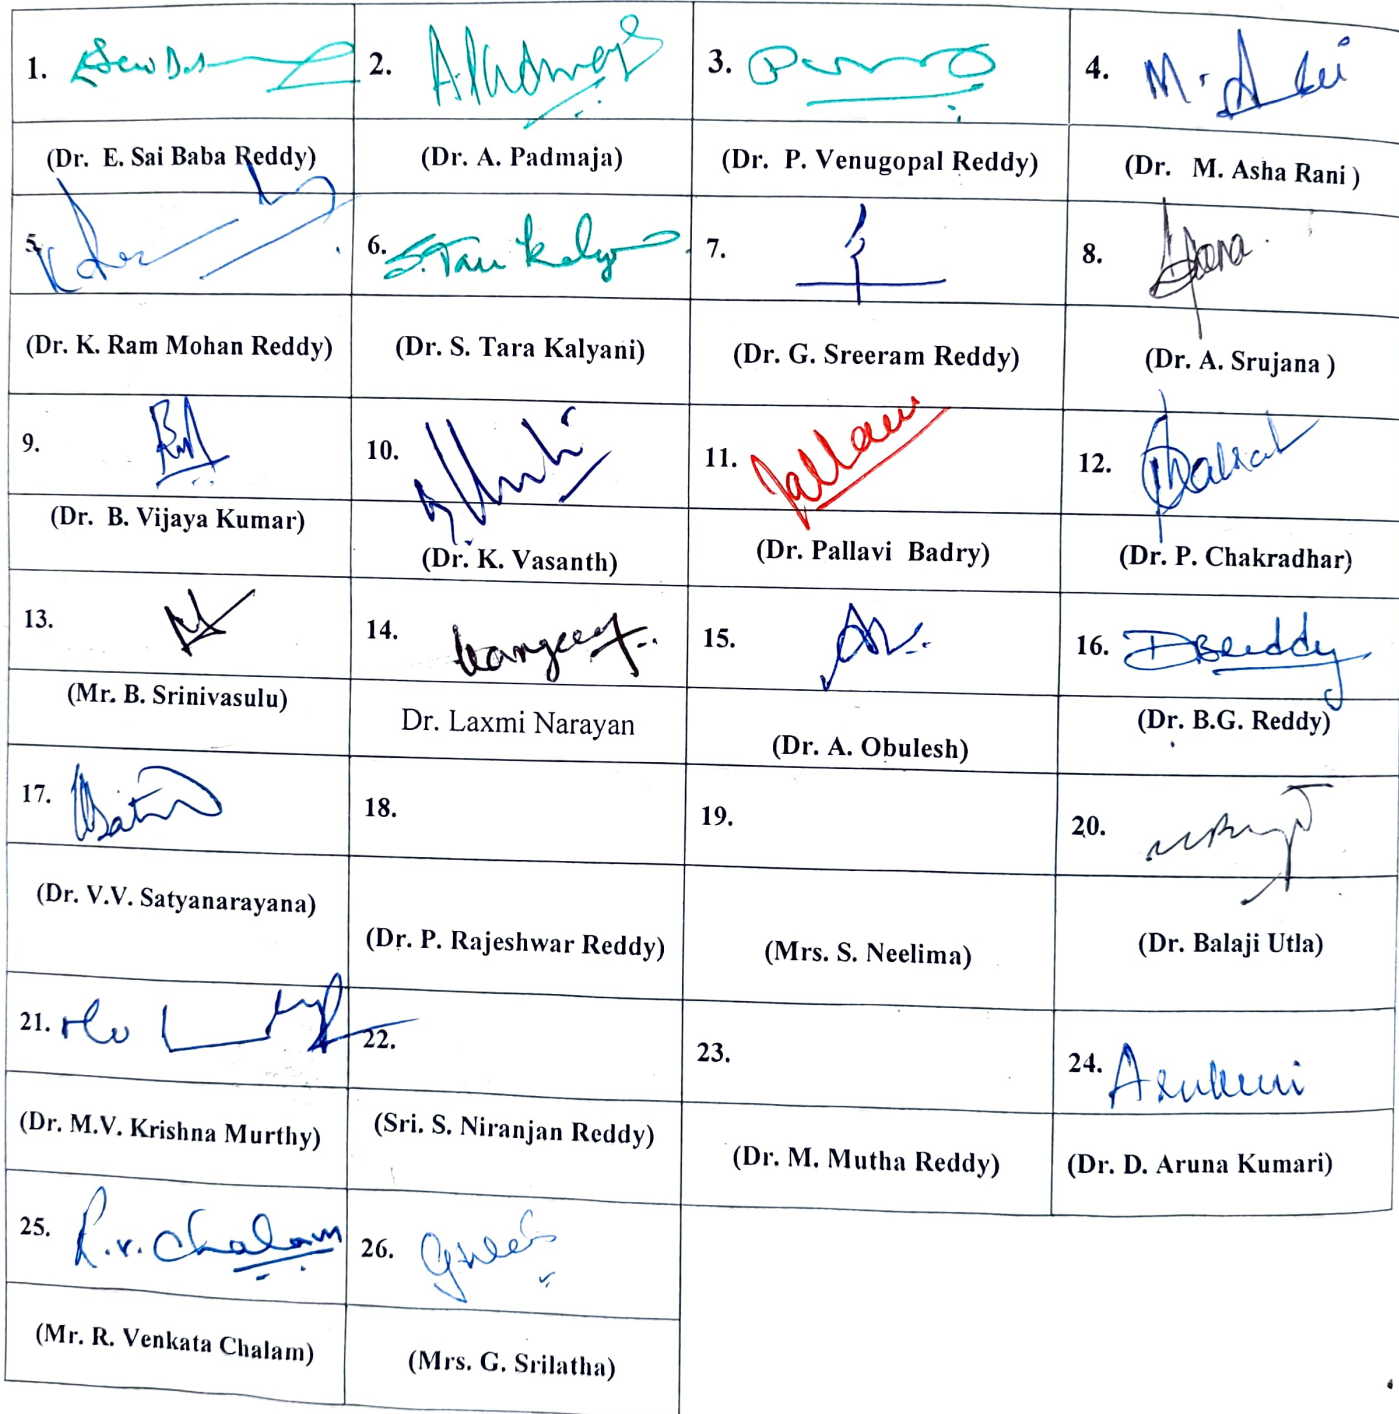 1.
2.
3.
4. M.
(Dr. E. Sai Baba Reddy)
(Dr. A. Padmaja)
(Dr. P. Venugopal Reddy)
(Dr. M. Asha Rani )
5.
6. S. Tara Kalya
7.
8.
(Dr. K. Ram Mohan Reddy)
(Dr. S. Tara Kalyani)
(Dr. G. Sreeram Reddy)
(Dr. A. Srujana )
9.
10.
11.
12.
(Dr. B. Vijaya Kumar)
(Dr. K. Vasanth)
(Dr. Pallavi Badry)
(Dr. P. Chakradhar)
13.
14.
15.
16.
(Mr. B. Srinivasulu)
Dr. Laxmi Narayan
(Dr. A. Obulesh)
(Dr. B.G. Reddy)
17.
18.
19.
20.
(Dr. V.V. Satyanarayana)
(Dr. P. Rajeshwar Reddy)
(Mrs. S. Neelima)
(Dr. Balaji Utla)
21.
22.
23.
24.
(Dr. M.V. Krishna Murthy)
(Sri. S. Niranjan Reddy)
(Dr. M. Mutha Reddy)
(Dr. D. Aruna Kumari)
25. R.V. Chalam
26.
(Mr. R. Venkata Chalam)
(Mrs. G. Srilatha)